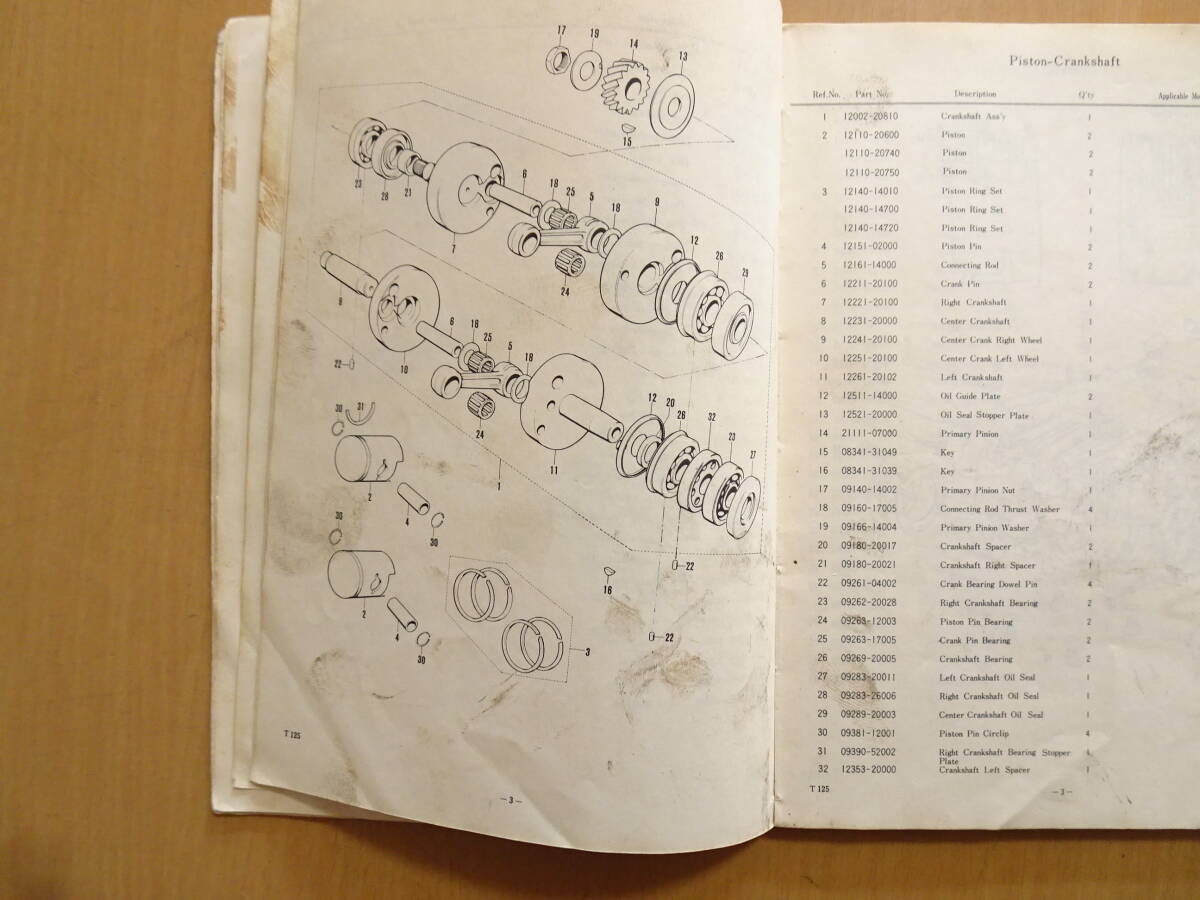 17 19 14 13
15
23 28 21 7 6 18 25 5 18 9 12 26 29
24
8 10 6 18 25 5 18
22
24 11 12 20 26 32 23 27
30 31
2 4 30
1
30
2 4 30
3
16
22
22
T 125
—3—
Piston-Crankshaft
Ref.No. Part No. Description Q'ty Applicable
1 12002-20810 Crankshaft Ass'y 1
2 12110-20600 Piston 2
12110-20740 Piston 2
12110-20750 Piston 2
3 12140-14010 Piston Ring Set 1
12140-14700 Piston Ring Set 1
12140-14720 Piston Ring Set 1
4 12151-02000 Piston Pin 2
5 12161-14000 Connecting Rod 2
6 12211-20100 Crank Pin 2
7 12221-20100 Right Crankshaft 1
8 12231-20000 Center Crankshaft 1
9 12241-20100 Center Crank Right Wheel 1
10 12251-20100 Center Crank Left Wheel 1
11 12261-20102 Left Crankshaft 1
12 12511-14000 Oil Guide Plate 2
13 12521-20000 Oil Seal Stopper Plate 1
14 21111-07000 Primary Pinion 1
15 08341-31049 Key 1
16 08341-31039 Key 1
17 09140-14002 Primary Pinion Nut 1
18 09160-17005 Connecting Rod Thrust Washer 4
19 09166-14004 Primary Pinion Washer 1
20 09180-20017 Crankshaft Spacer 2
21 09180-20021 Crankshaft Right Spacer 1
22 09261-04002 Crank Bearing Dowel Pin 4
23 09262-20028 Right Crankshaft Bearing 2
24 09263-12003 Piston Pin Bearing 2
25 09263-17005 Crank Pin Bearing 2
26 09269-20005 Crankshaft Bearing 2
27 09283-20011 Left Crankshaft Oil Seal 1
28 09283-26006 Right Crankshaft Oil Seal 1
29 09289-20003 Center Crankshaft Oil Seal 1
30 09381-12001 Piston Pin Circlip 4
31 09390-52002 Right Crankshaft Bearing Stopper
Plate
32 12353-20000 Crankshaft Left Spacer 1
T 125
—3—